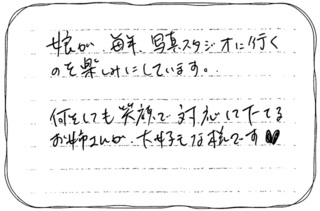 娘が 毎年、写真スタジオに行く
のを楽しみにしています。
何をしても笑顔で対応してたてる
お姉さんが、大好きな様です♥